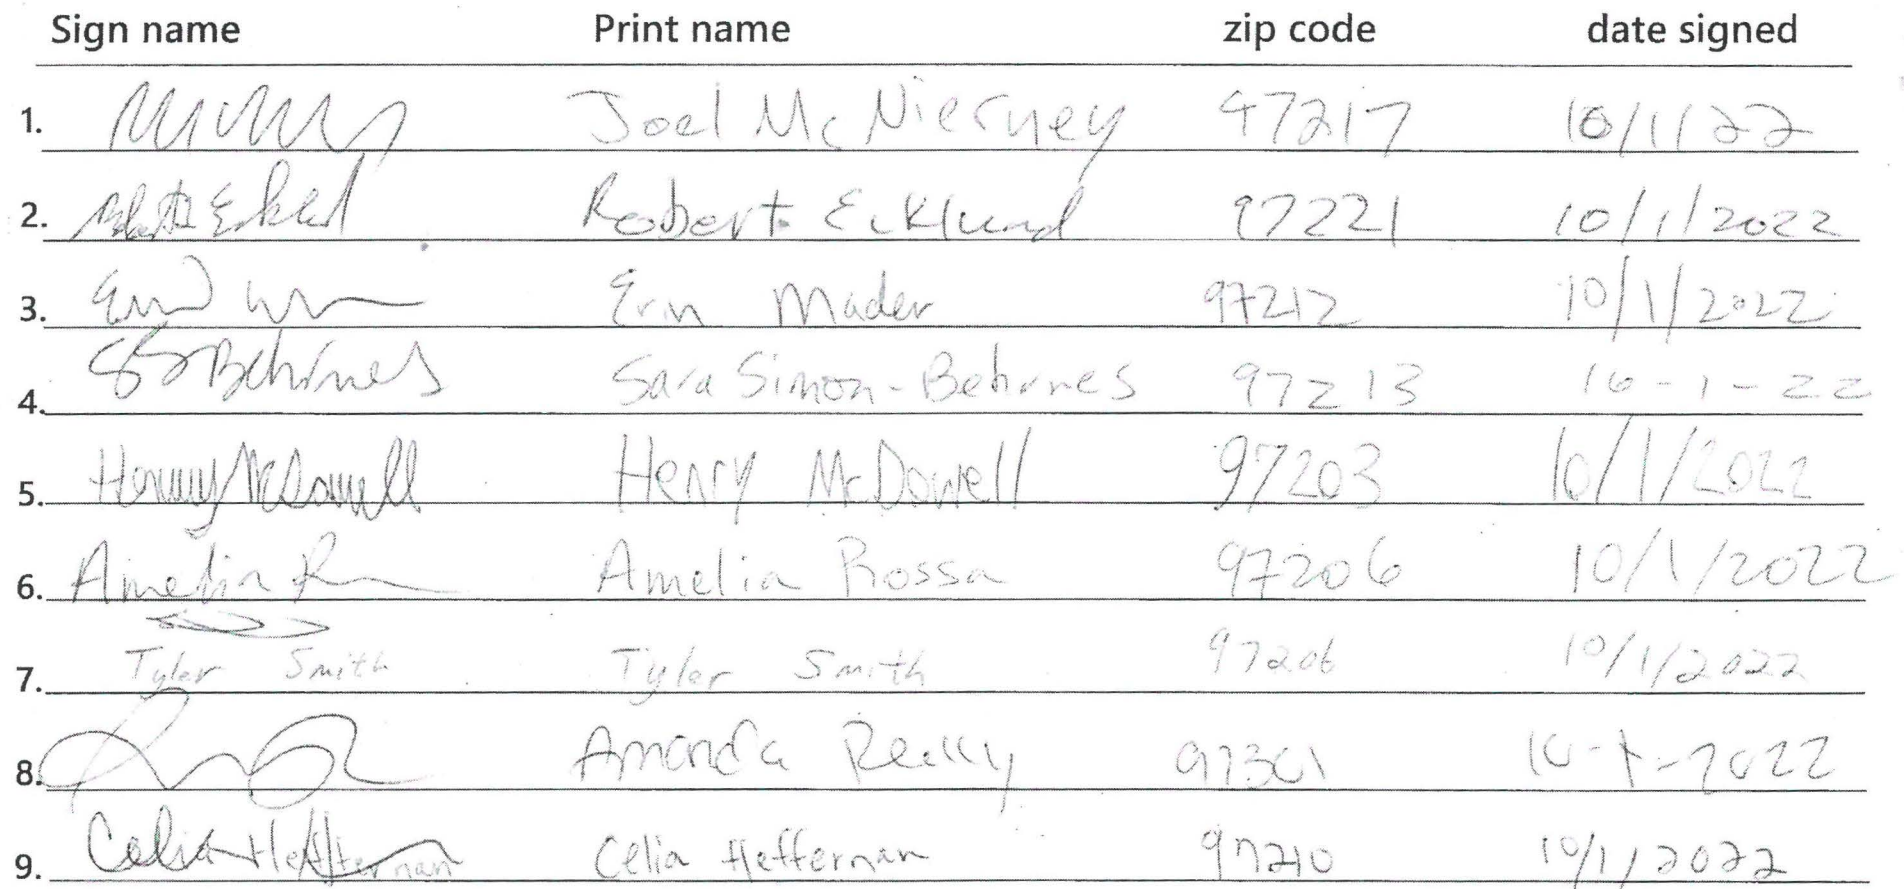 Sign name Print name zip code date signed
1. Joel McNierney 97217 10/1/22
2. Robert Ecklund 97221 10/1/2022
3. Erin Mader 97212 10/1/2022
4. Behrnes Sara Simon-Behrnes 97213 10-1-22
5. Henry McDowell Henry McDowell 97203 10/1/2022
6. Amelia Amelia Rossa 97206 10/1/2022
7. Tyler Smith Tyler Smith 97206 10/1/2022
8. Amanda Reilly 97301 10-1-2022
9. Celia Heffernan Celia Heffernan 97210 10/1/2022